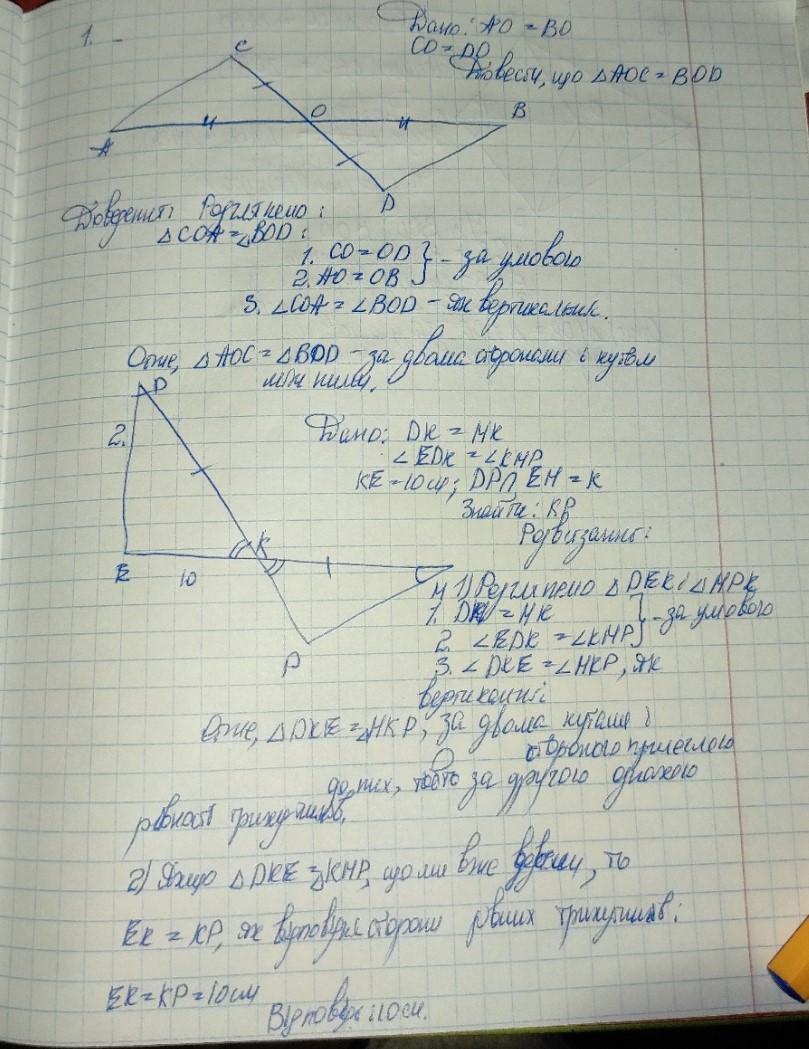 1.
Дано: AO = BO
CO = DO
Довести, що △AOC = BOD
C
O
B
A
D
Доведення: Розглянемо:
△COA = △BOD:
1. CO = OD } - за умовою
2. AO = OB
3. ∠COA = ∠BOD - як вертикальн.
Отже, △AOC = △BOD - за двома сторонами і кутом
між ними.
D
2.
Дано: DK = MK
∠EDK = ∠KMP
KE = 10 см; DP ∩ EM = K
Знайти: KP
Розвязання:
K
E
10
M
P
1) Розглянемо △DEK і △MPK
1. DK = MK } - за умовою
2. ∠EDK = ∠KMP
3. ∠DKE = ∠MKP, як
вертикальні
Отже, △DKE = △MKP, за двома кутами і
стороною прилеглою
до них, тобто за другою ознакою
рівності трикутників.
2) Якщо △DKE = △KMP, що ми вже довели, то
EK = KP, як відповідні сторони рівних трикутників:
EK = KP = 10 см
Відповідь: 10 см.